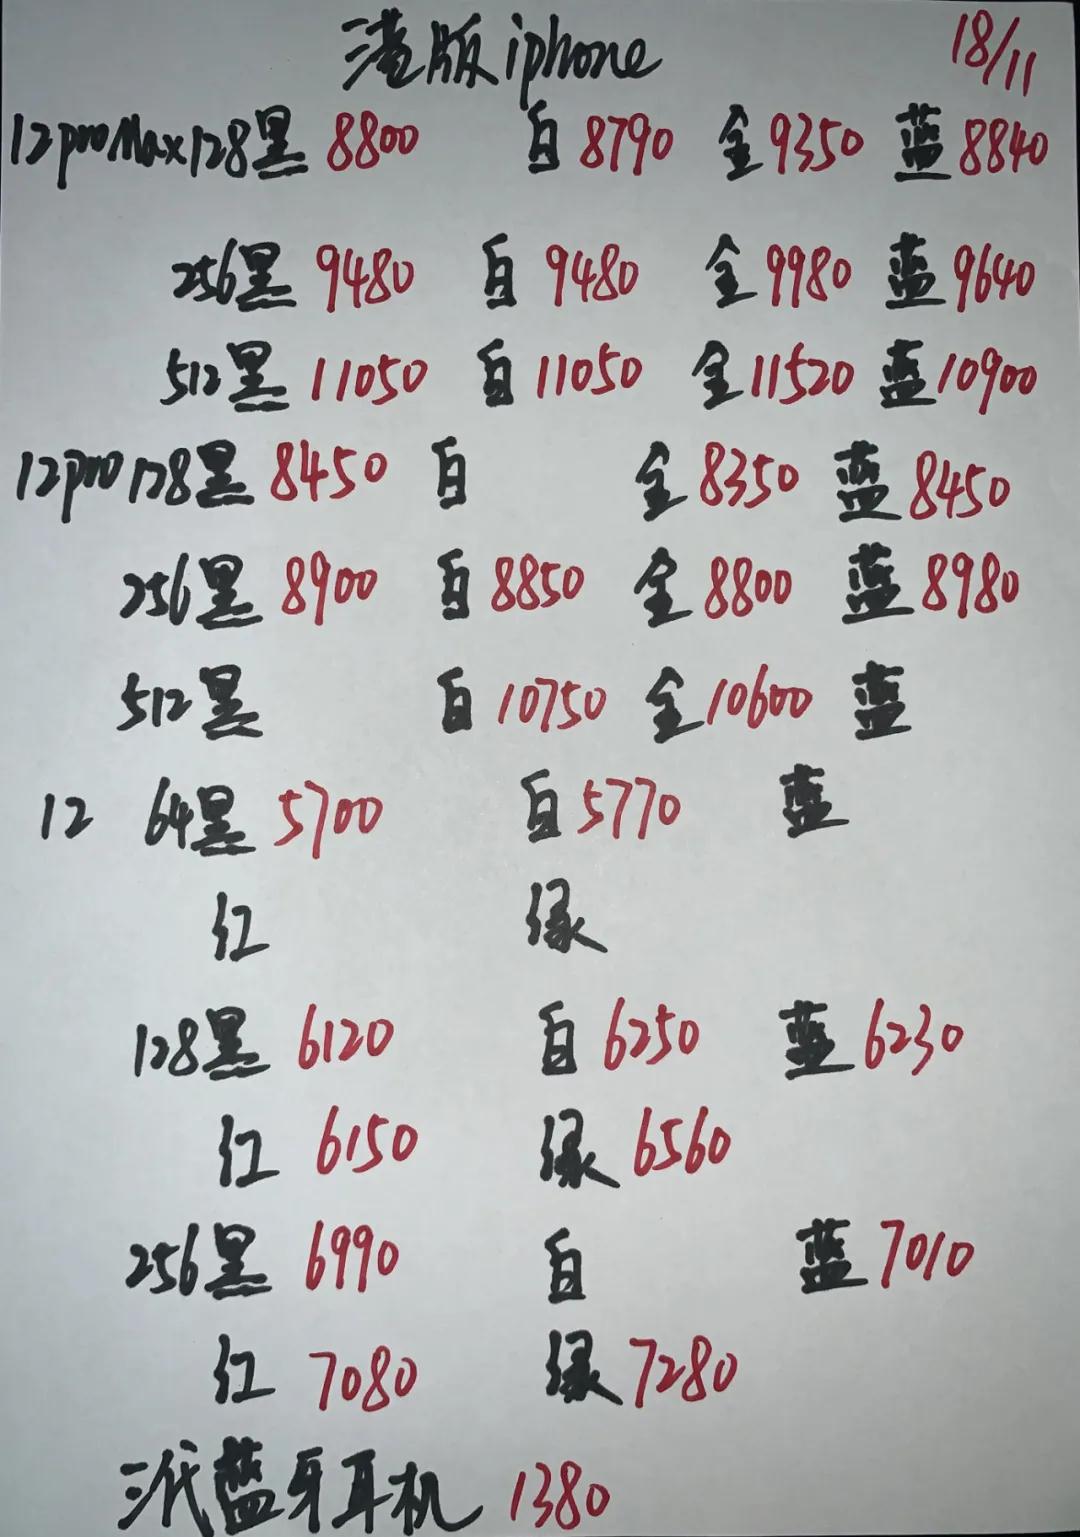 港版iphone 18/11
12proMax128黑 8800 白 8790 金 9350 蓝 8840
256黑 9480 白 9480 金 9980 蓝 9640
512黑 11050 白 11050 金 11520 蓝 10900
12pro 128黑 8450 白 金 8350 蓝 8450
256黑 8900 白 8850 金 8800 蓝 8980
512黑 白 10750 金 10600 蓝
12 64黑 5700 白 5770 蓝
红 绿
128黑 6120 白 6250 蓝 6230
红 6150 绿 6560
256黑 6990 白 蓝 7010
红 7080 绿 7280
三代蓝牙耳机 1380